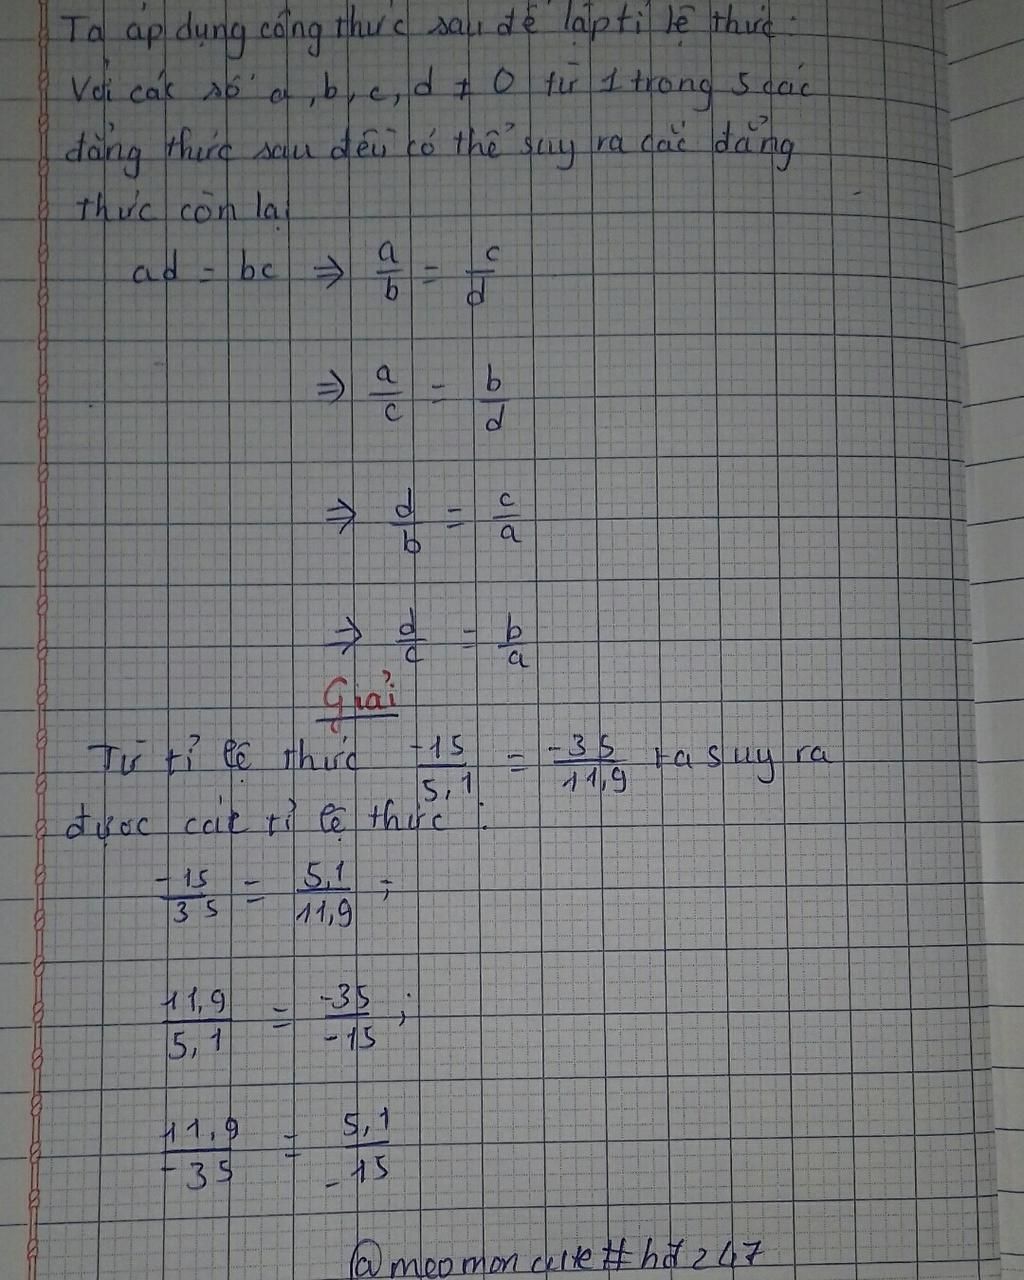 Ta áp dụng công thức sau để lập tỉ lệ thức:
Với các số a, b, c, d ≠ 0 từ 1 trong 5 các
đẳng thức sau đều có thể suy ra các đẳng
thức còn lại
ad = bc ⇒ a/b = c/d
⇒ a/c = b/d
⇒ d/b = c/a
⇒ d/c = b/a
Giải
Từ tỉ lệ thức -15/5,1 = -35/11,9 ta suy ra
được các tỉ lệ thức:
-15/35 = 5,1/11,9 ;
11,9/5,1 = -35/-15 ;
11,9/-35 = 5,1/-15